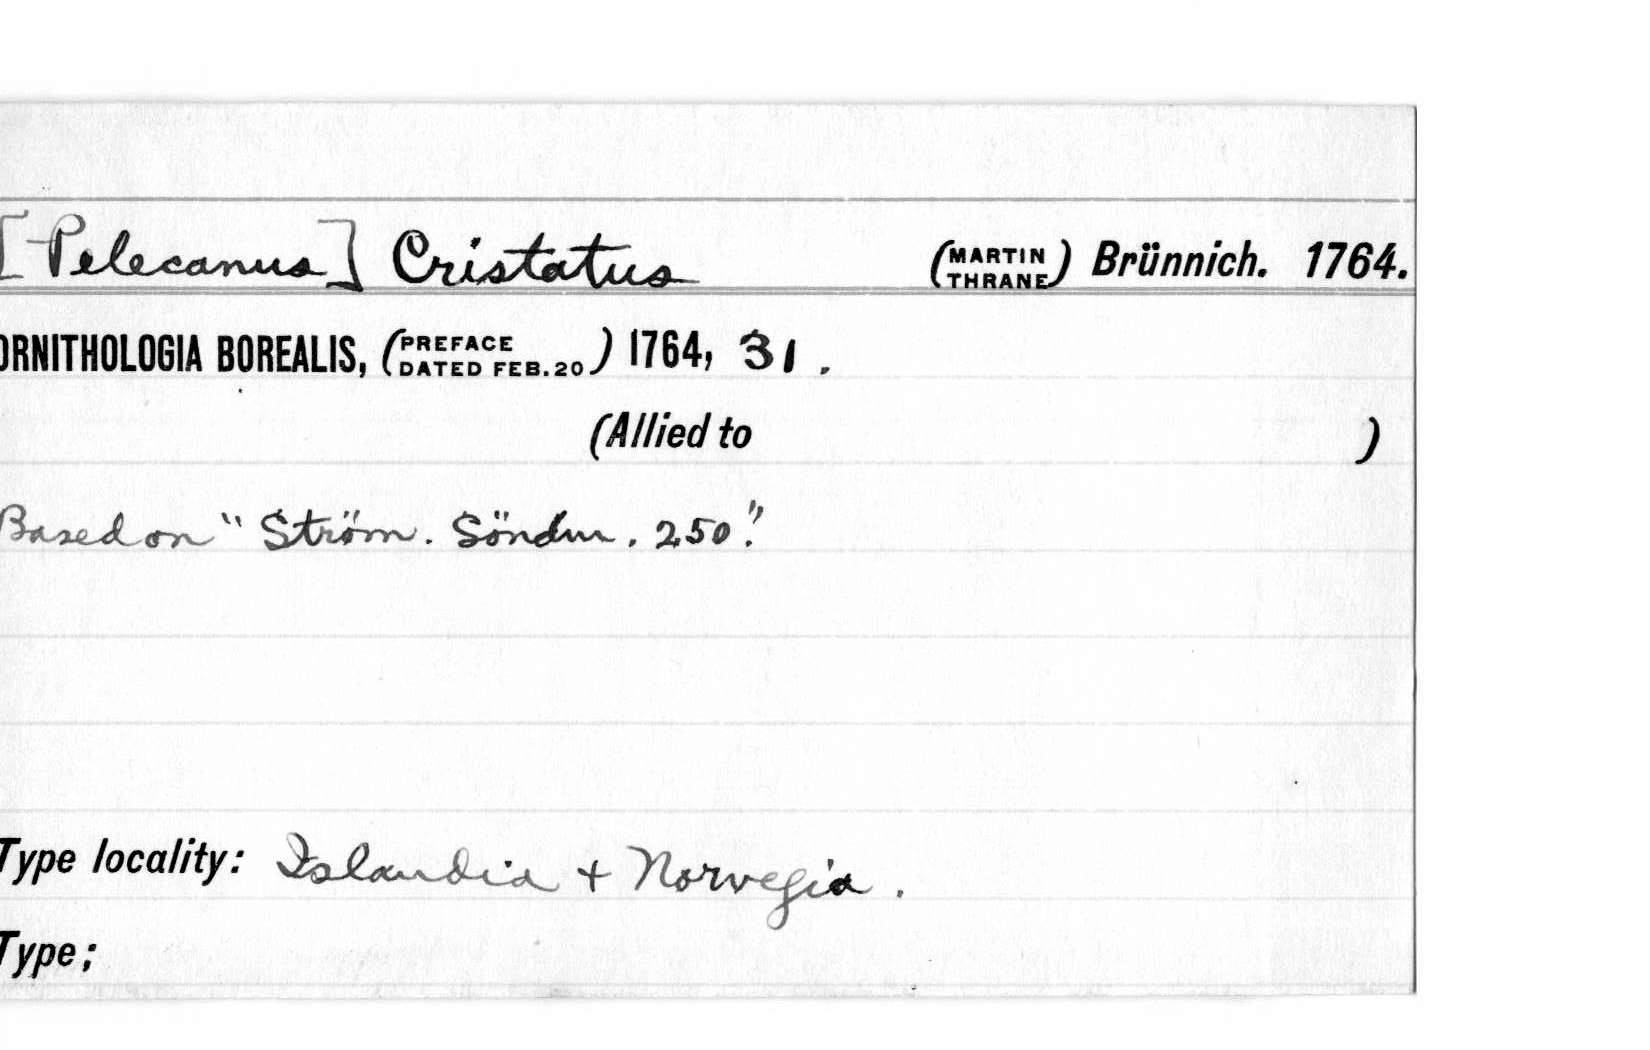 [Pelecanus] Cristatus (MARTIN THRANE) Brünnich. 1764.
ORNITHOLOGIA BOREALIS, (PREFACE DATED FEB.20) 1764, 31.
(Allied to )
Based on "Ström. Söndm. 250."
Type locality: Islandia + Norvegia.
Type;